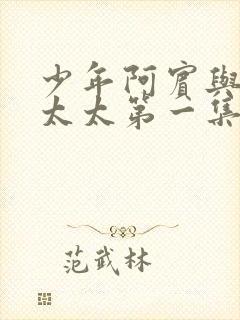 少年阿賓與
太太第一集
范武林